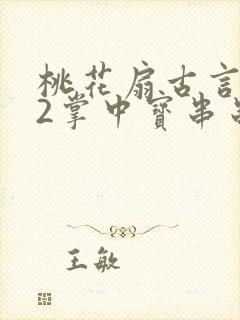 桃花扇古言
2掌中寳串
王敏